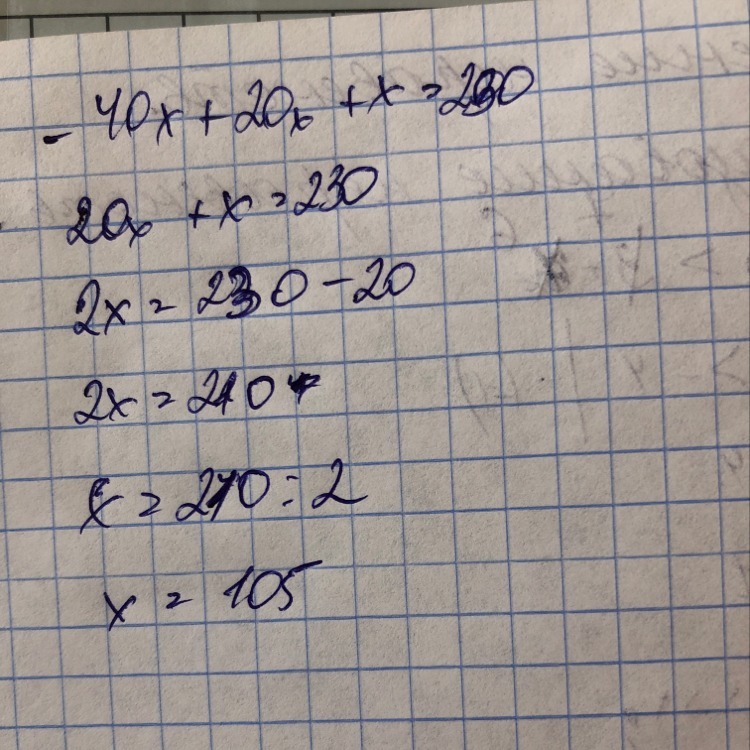 - 40x + 20x + x = 230
20x + x = 230
2x = 230 - 20
2x = 210
x = 210 : 2
x = 105